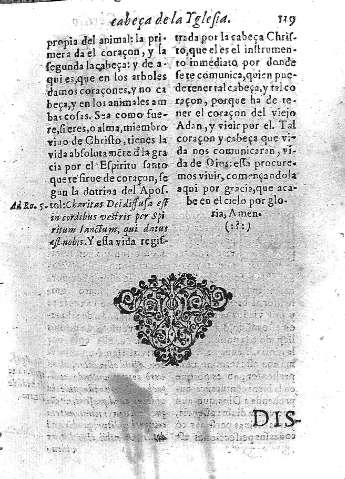 cabeça de la Yglesia. 119
propia del animal: la pri
mera da el coraçon, y la
segunda la cabeça: y de a-
qui es, que en los arboles
damos coraçones, y no ca
beça, y en los animales am
bas cosas. Sea como fue-
re, si eres, o alma, miembro
viuo de Christo, tienes la
vida absoluta
cia por el Espiritu santo
que te sirue de coraçon, se
gun la dotrina del Apos-
Ad Ro. 5. tol: Charitas Dei diffusa est
in cordibus vestris per Spi
ritum sanctum, qui datus
est nobis. Y esta vida regis-
trada por la cabeça Chris-
to, que el es el instrumen-
to inmediato por donde
se te comunica, quien pue-
de tener tal cabeça, y tal co
raçon, porque ha de te-
ner el coraçon del viejo
Adan, y viuir por el. Tal
coraçon y cabeça que vi-
da nos comunicaran, vi-
da de Dios: esta procure-
mos viuir, començandola
aqui por gracia, que aca-
be en el cielo por glo-
ria, Amen.
(.?.)
DIS-